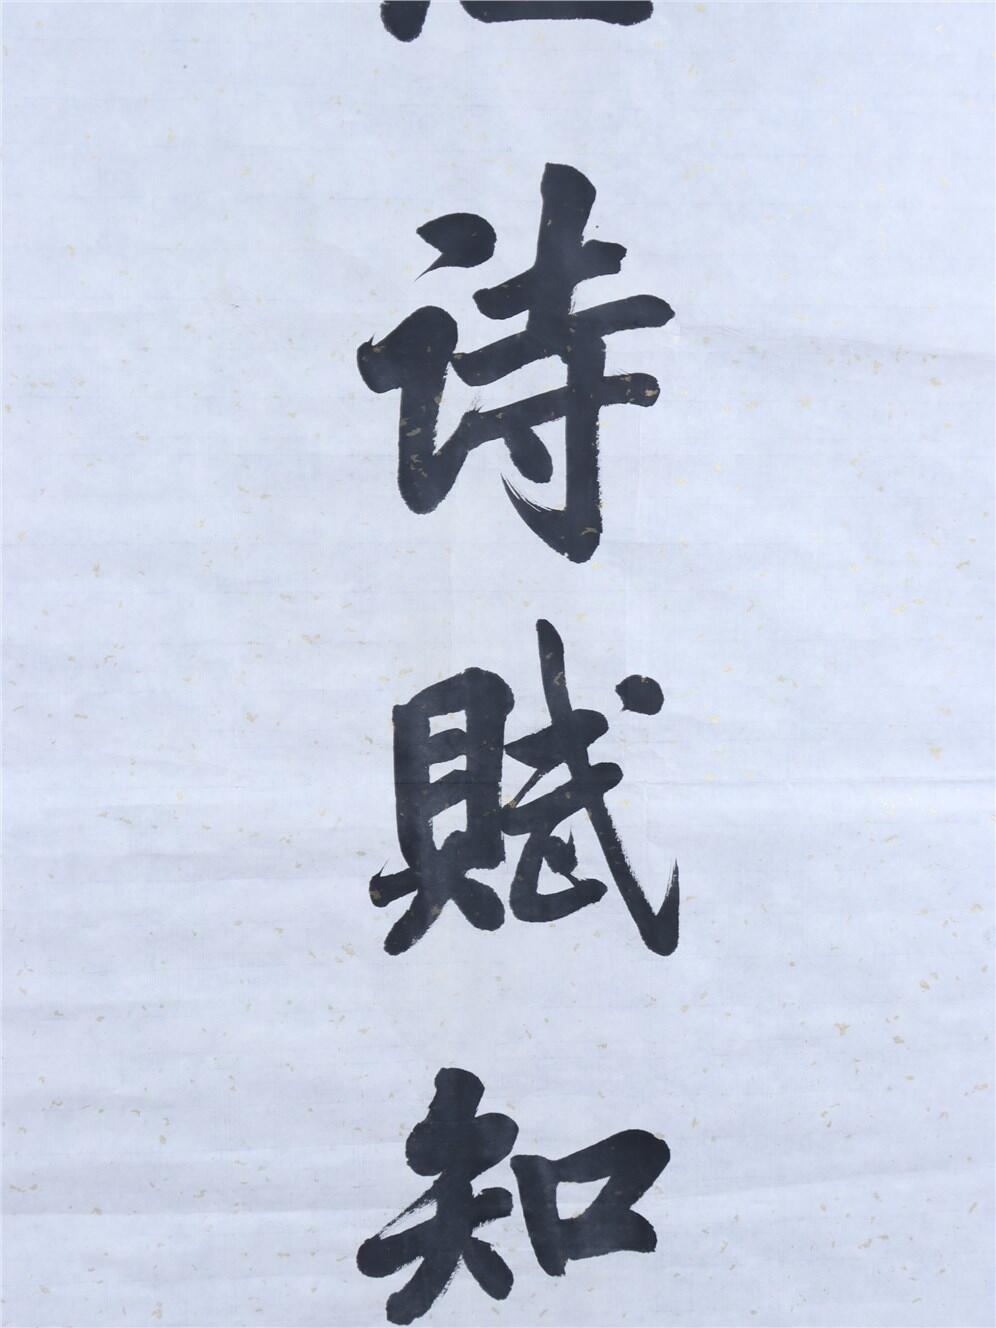 诗賦知